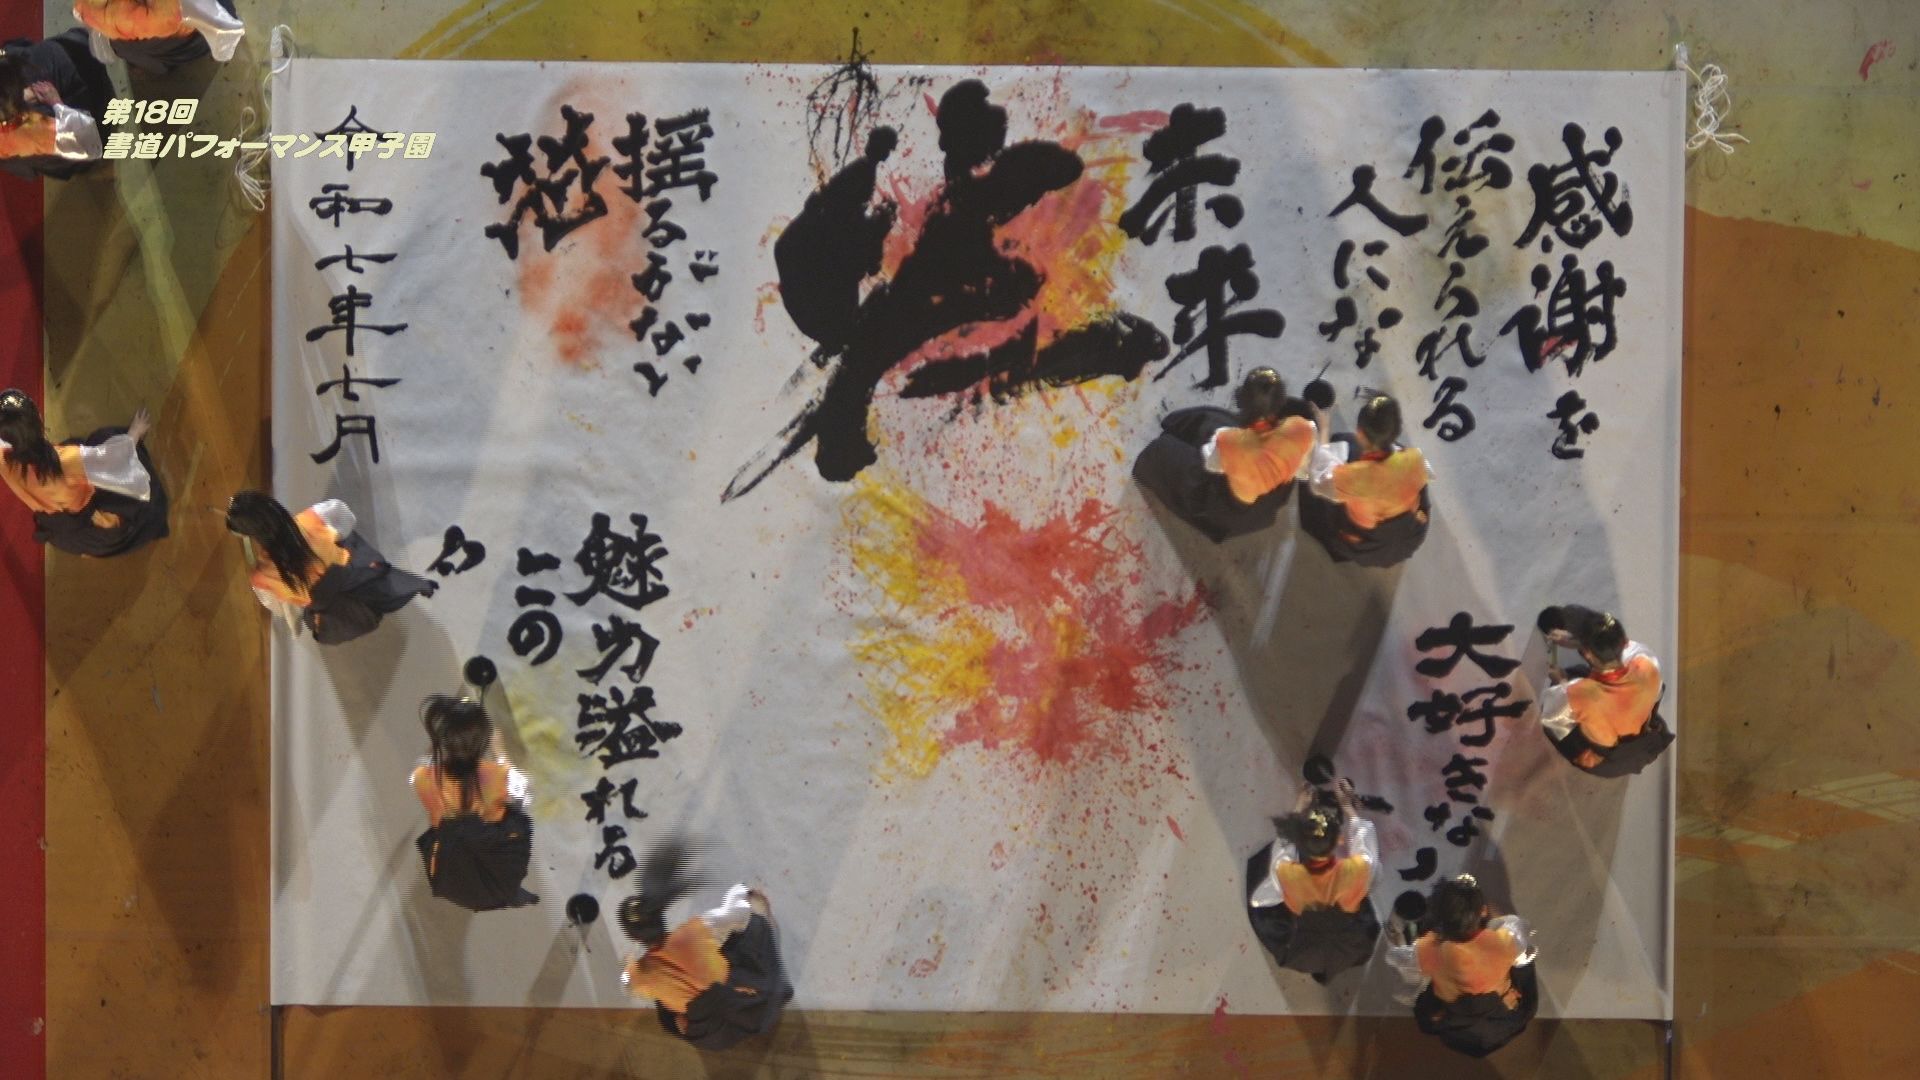 第18回
書道パフォーマンス甲子園
感謝を
伝えられる
人にな
未来
揺るがない
令和七年七月
大好きな
魅力溢れる
この